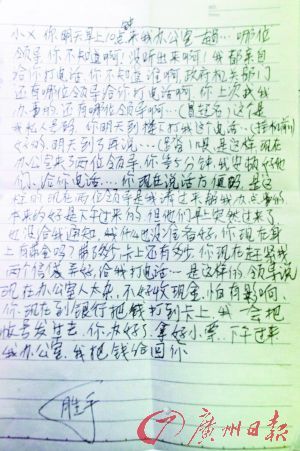 小X 你明天早上10点来我办公室一趟…哪位
领导,你不知道啊!没听出来啊!我都亲自
给你打电话,你不知道谁啊,政府机关部门
还有哪位领导给你打电话啊,你上次找我
办事的,还有哪位领导啊…(冒起名)这个是
我私人号码,你明天到楼下打我这个电话…(挂机前)
好的,明天到了再说…(冒名)喂是这样,现在
办公室来了两位领导,你等5分钟,我安排好他
们,给你电话…你现在说话方便吗,是这
样的,现在两位领导是我请过来帮我办点事的
本来约好是下午过来的,但他们早上突然过来了
也没给我通知,我什么也没准备好,你现在身
上有现金吗?带了多少,卡上还有多少,你现在赶紧找
两个信封弄好,给我打电话…是这样的领导说
现在办公室人太杂,不好收现金,怕有影响,
你现在到银行把钱打到卡上,我一会把
帐号发过去,你办好了,拿好小票,下午过来
我办公室,我把钱给回你
胜子
广州日报